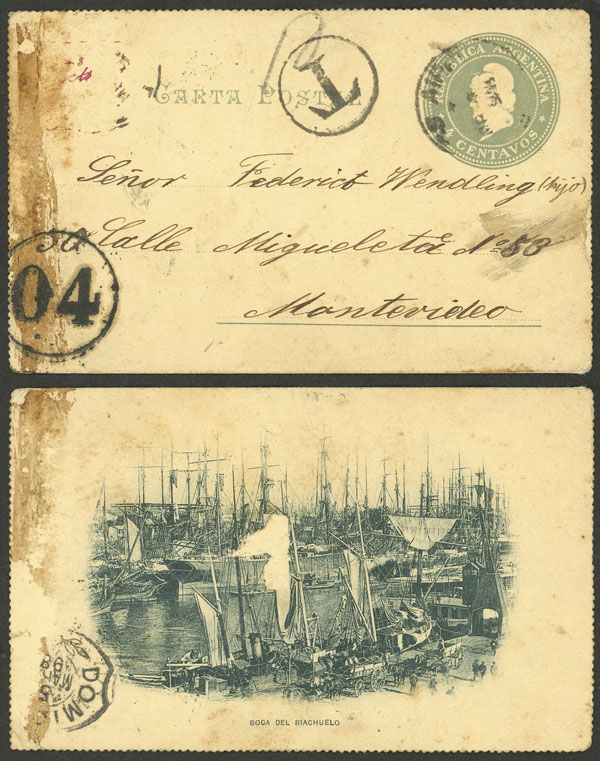 CARTA POSTAL
T
REPUBLICA ARGENTINA
4 CENTAVOS
Señor Federico Wendling (hijo)
Calle Miguelete Nº 53
Montevideo
04
DOMI
BOCA DEL RIACHUELO